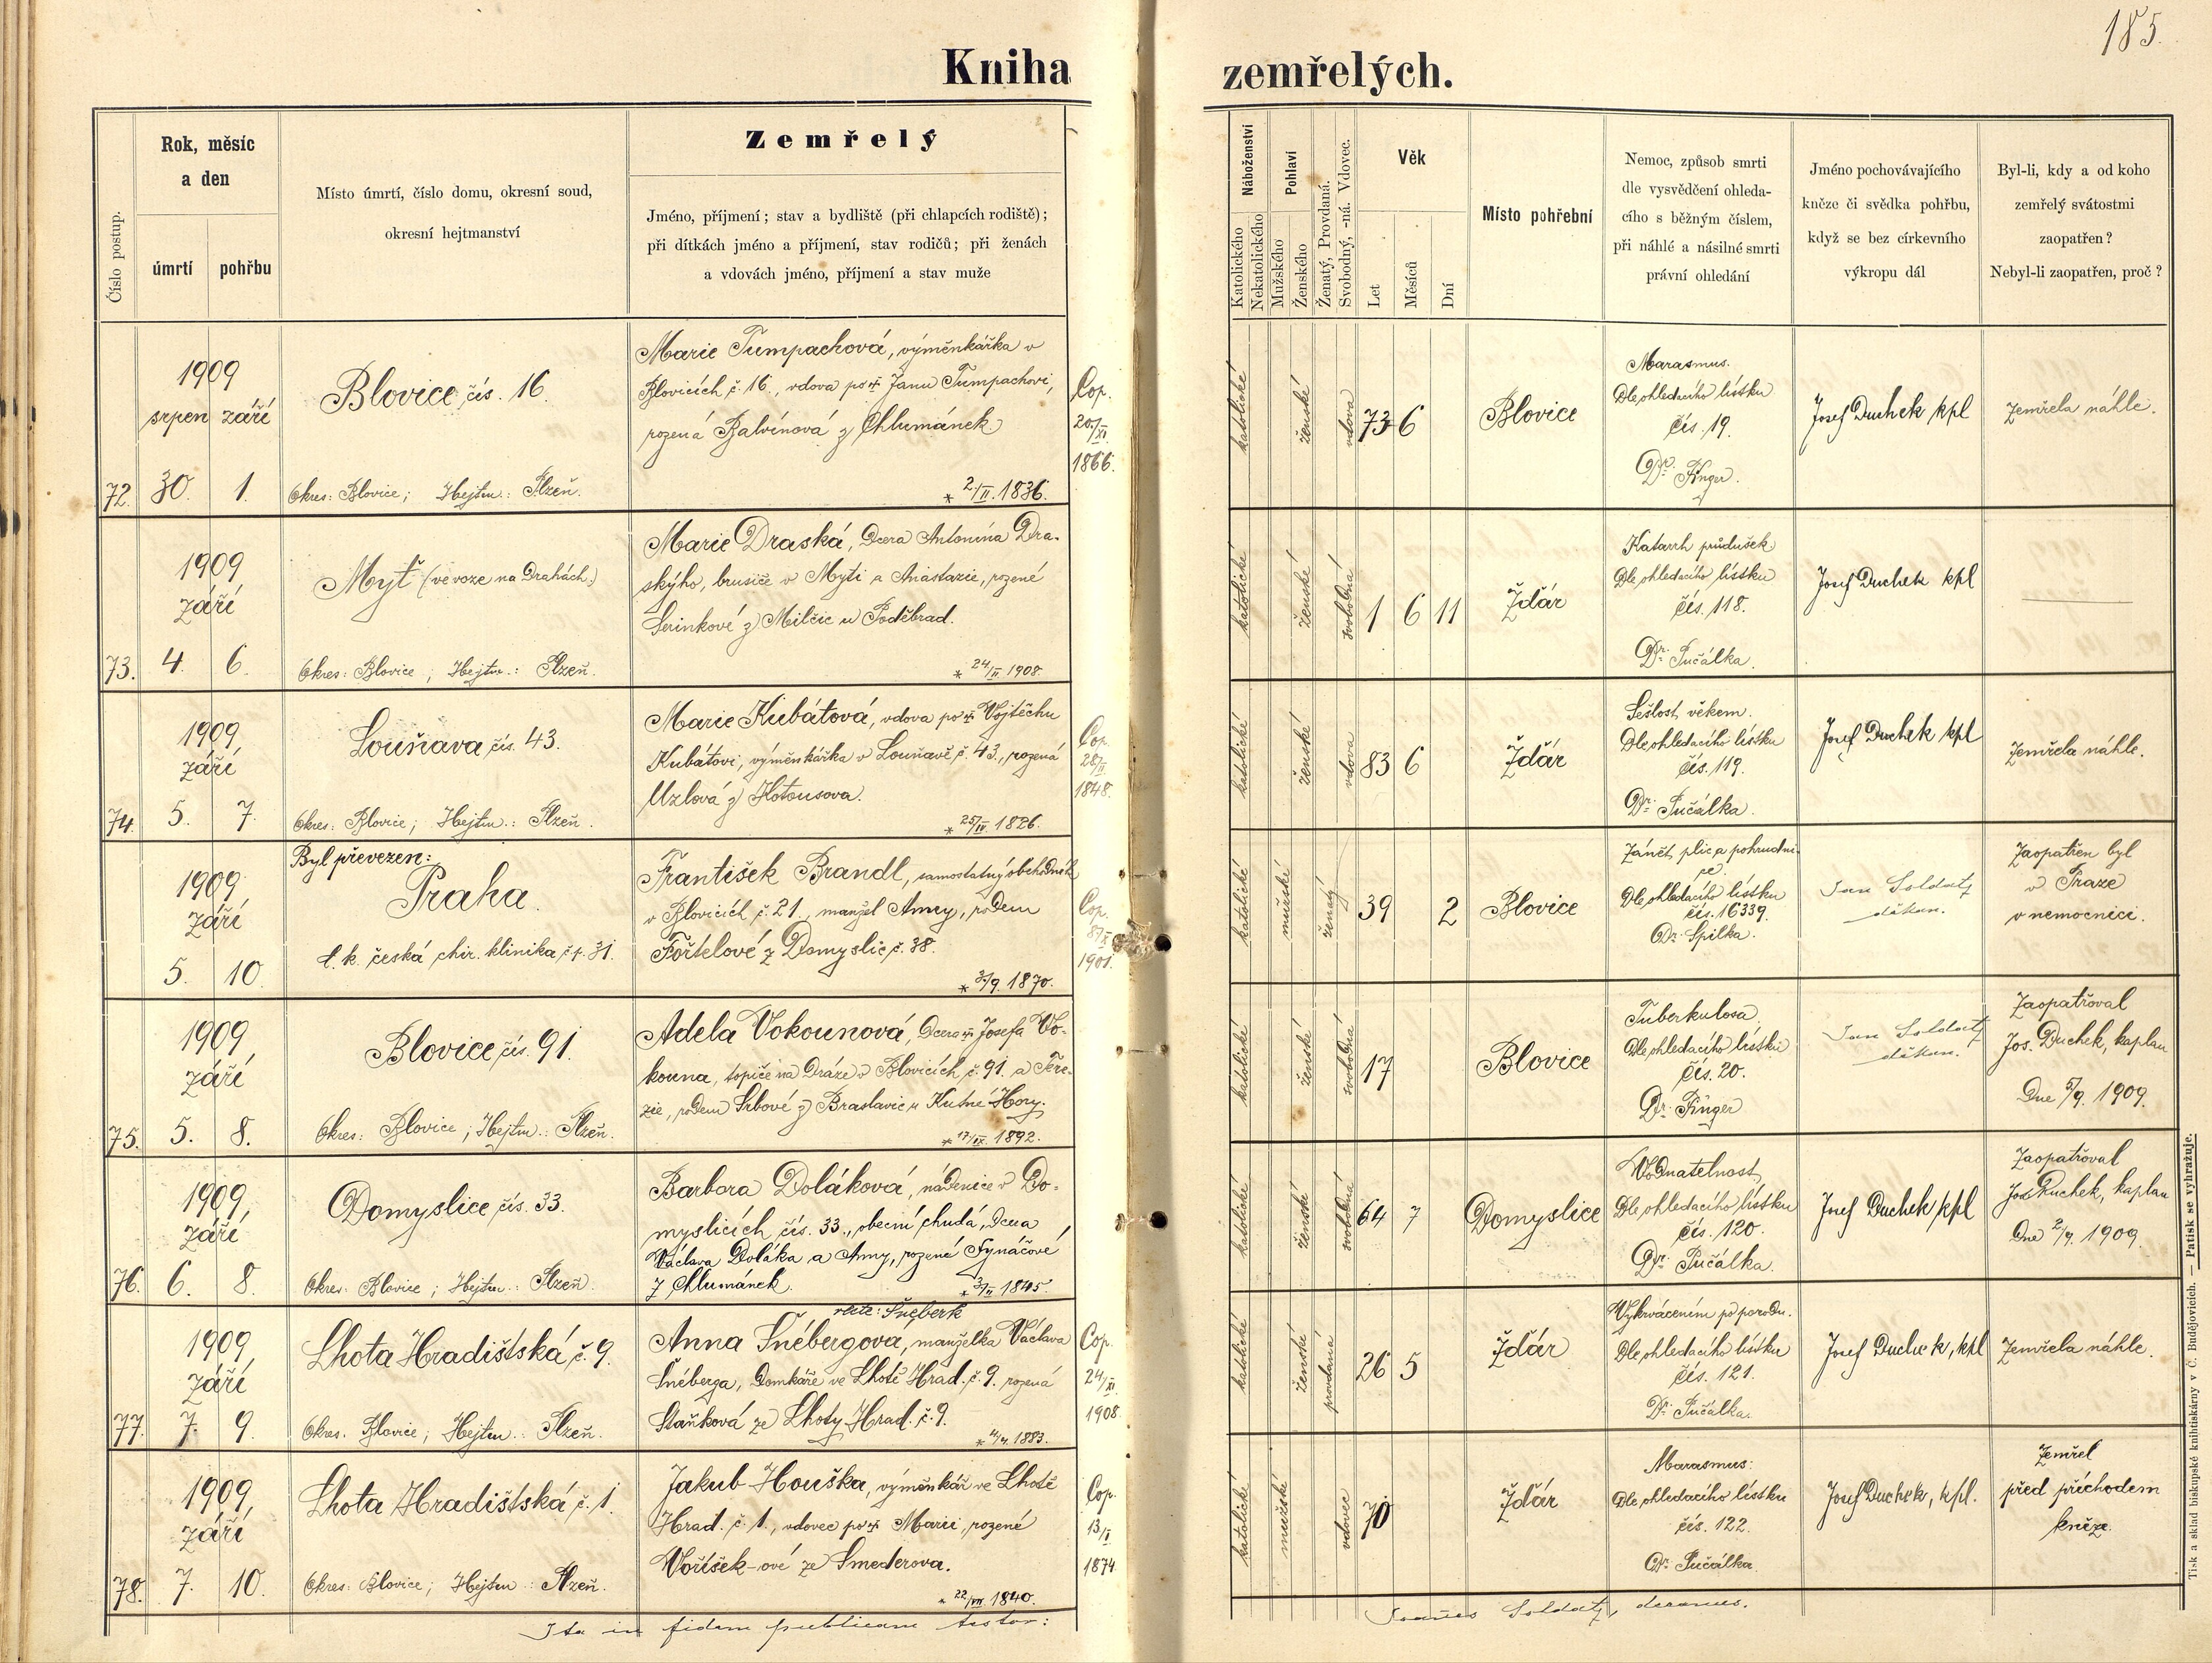 185.
Kniha zemřelých.
Číslo postup.
Rok, měsíc
a den
úmrtí
pohřbu
Místo úmrtí, číslo domu, okresní soud,
okresní hejtmanství
Zemřelý
Jméno, příjmení; stav a bydliště (při chlapcích rodiště);
při dítkách jméno a příjmení, stav rodičů; při ženách
a vdovách jméno, příjmení a stav muže
Náboženství
Katolického
Nekatolického
Pohlaví
Mužského
Ženského
Ženatý, Provdaná.
Svobodný, -ná. Vdovec.
Věk
Let
Měsíců
Dní
Místo pohřební
Nemoc, způsob smrti
dle vysvědčení ohleda-
cího s běžným číslem,
při náhlé a násilné smrti
právní ohledání
Jméno pochovávajícího
kněze či svědka pohřbu,
když se bez církevního
výkropu dál
Byl-li, kdy a od koho
zemřelý svátostmi
zaopatřen?
Nebyl-li zaopatřen, proč?
72.
1909
srpen září
30. 1.
Blovice čís. 16.
Okres: Blovice; Hejtm.: Plzeň.
Marie Tumpachová, výměnkářka v
Blovicích č. 16., vdova po † Janu Tumpachovi,
rozená Balvínová z Chlumánek
* 2/II. 1836.
Cop.
20/XI
1866.
katolické
ženské
vdova
73 6
Blovice
Marasmus.
Dle ohledacího lístku
čís. 19.
Dr. Finger.
Josef Duchek kpl
Zemřela náhle.
73.
1909
září
4. 6.
Mýť (ve voze na Drahách.)
Okres: Blovice; Hejtm.: Plzeň.
Marie Draská, dcera Antonína Dra-
skýho, brusiče v Mýti a Anastazie, rozené
Serinkové z Milčic u Poděbrad.
* 24/II. 1908.
katolické
ženské
svobodná
1 6 11
Ždár
Katarrh průdušek.
Dle ohledacího lístku
čís. 118.
Dr. Pučálka.
Josef Duchek kpl
74.
1909
září
5. 7.
Louňava čís. 43.
Okres: Blovice; Hejtm.: Plzeň.
Marie Kubátová, vdova po † Vojtěchu
Kubátovi, výměnkářka v Louňavě č. 43., rozená
Uzlová z Kotousova.
* 25/IV. 1826.
Cop.
1848.
katolické
ženské
vdova
83 6
Žďár
Sešlost věkem.
Dle ohledacího lístku
čís. 119.
Dr. Pučálka.
Josef Duchek kpl
Zemřela náhle.
1909
září
5. 10.
Byl převezen:
Praha.
c. k. česká chir. klinika č. p. 31.
František Brandl, samostatný obchodník
v Blovicích č. 21., manžel Anny, rodem
Fořtelové z Domyslic č. 38.
* 3/9. 1870.
Cop.
1901.
katolické
mužské
ženatý
39 2
Blovice
Zánět plic a pohrudni-
ce.
Dle ohledacího lístku
čís. 16339.
Dr. Spilka.
Jan Soldát,
děkan.
Zaopatřen byl
v Praze
v nemocnici.
75.
1909
září
5. 8.
Blovice čís. 91.
Okres: Blovice; Hejtm.: Plzeň.
Adela Vokounová, dcera † Josefa Vo-
kouna, topiče na Dráze v Blovicích č. 91. a Tere-
zie, rodem Srbové z Braslavic u Kutné Hory.
* 17/IX. 1892.
katolické
ženské
svobodná
17
Blovice
Tuberkulosa.
Dle ohledacího lístku
čís. 20.
Dr. Finger
Jan Soldát,
děkan.
Zaopatřoval
Jos. Duchek, kaplan
Dne 5/9. 1909.
76.
1909
září
6. 8.
Domyslice čís. 33.
Okres: Blovice; Hejtm.: Plzeň.
Barbora Doláková, nádenice v Do-
myslicích čís. 33., obecní chudá, dcera
Václava Doláka a Anny, rozené Synáčové
z Chlumánek.
* 3/II. 1845.
katolické
ženské
svobodná
64 7
Domyslice
Vodnatelnost,
Dle ohledacího lístku
čís. 120.
Dr. Pučálka.
Josef Duchek, kpl
Zaopatřoval
Jos. Duchek, kaplan
Dne 2/9. 1909.
77.
1909
září
7. 9.
Lhota Hradištská č. 9.
Okres: Blovice; Hejtm.: Plzeň.
recte: Šneberk
Anna Šnébergova, manželka Václava
Šnéberga, domkáře ve Lhotě Hrad. č. 9. rozená
Staňková ze Lhoty Hrad. č. 9.
* 4/4. 1883.
Cop.
24/XI
1908.
katolické
ženské
provdaná
26 5
Žďár
Vykrvácením po porodu.
Dle ohledacího lístku
čís. 121.
Dr. Pučálka.
Josef Duchek, kpl
Zemřela náhle.
78.
1909
září
7. 10.
Lhota Hradištská č. 1
Okres: Blovice; Hejtm.: Plzeň.
Jakub Houška, výměnkář ve Lhotě
Hrad. č. 1., vdovec po † Marii, rozené
Voříšek-ové ze Smederova.
* 22/VII. 1840.
Cop.
13/I
1874
katolické
mužské
vdovec
70
Žďár
Marasmus.
Dle ohledacího lístku
čís. 122.
Dr. Pučálka.
Josef Duchek, kpl.
Zemřel
před příchodem
kněze.
Ita in fidem publicam testor:
Joannes Soldát, decanus.
Tisk a sklad biskupské knihtiskárny v Č. Budějovicích. — Patisk se vyhražuje.